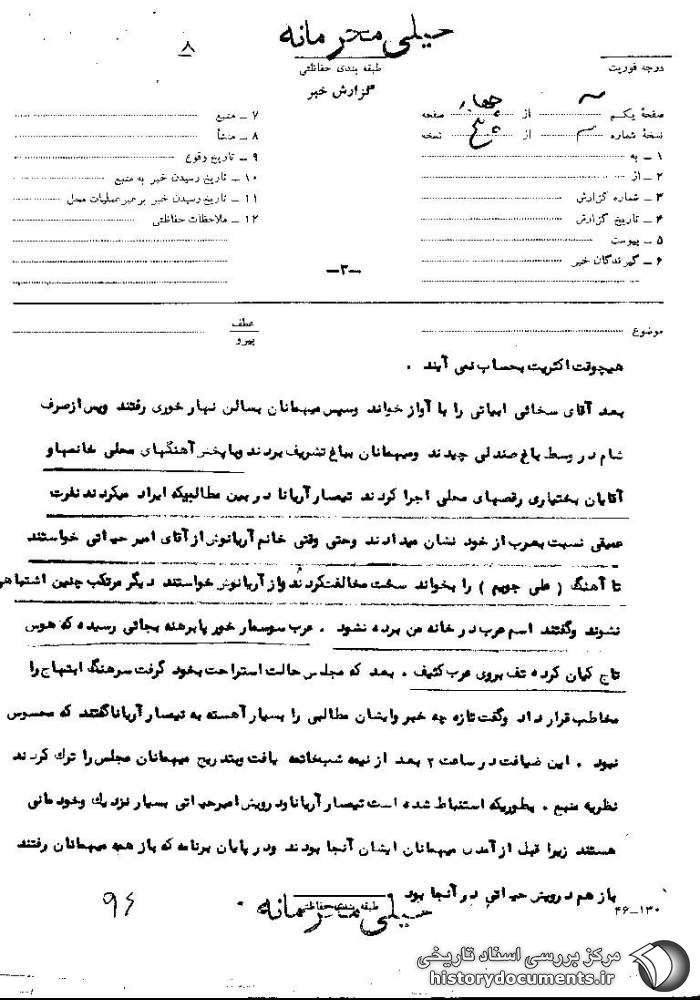 خیلی محرمانه
۸
طبقه بندی حفاظتی
درجه فوریت
گزارش خبر
صفحهٔ یکم ........ از چهار صفحه
نسخهٔ شماره ........ از پنج نسخه
۱ ـ به
۲ ـ از
۳ ـ شماره گزارش
۴ ـ تاریخ گزارش
۵ ـ پیوست
۶ ـ گیرندگان خبر
۷ ـ منبع
۸ ـ منشأ
۹ ـ تاریخ وقوع
۱۰ ـ تاریخ رسیدن خبر به منبع
۱۱ ـ تاریخ رسیدن خبر برهبر عملیات محل
۱۲ ـ ملاحظات حفاظتی
ـ۳ـ
موضوع
عطف
پیرو
هیچوقت اکثریت بحساب نمی آیند .
بعد آقای سخائی ابیاتی را با آواز خواند وسپس میهمانان بسالن نهار خوری رفتند وپس ازصرف
شام در وسط باغ صندلی چیدند ومیهمانان بباغ تشریف بردند وبا پخش آهنگهای محلی خانمهاو
آقایان بختیاری رقصهای محلی اجرا کردند تیمسار آریانا در بین مطالبیکه ایراد میکردند نفرت
عمیقی نسبت بعرب از خود نشان میدادند وحتی وقتی خانم آریانوش از آقای امیر حیاتی خواستند
تا آهنگ ( علی جویم ) را بخواند سخت مخالفت کردند واز آریانوش خواستند دیگر مرتکب چنین اشتباهی
نشوند وگفتند اسم عرب در خانه من برده نشود . عرب سوسمار خور پابرهنه بجائی رسیده که هوس
تاج کیان کرده تف بروی عرب کثیف . بعد که مجلس حالت استراحت بخود گرفت سرهنگ ابتهاج را
مخاطب قرار داد وگفت تازه چه خبر وایشان مطالبی را بسیار آهسته به تیمسار آریانا گفتند که محسوس
نبود . این ضیافت در ساعت ۲ بعد از نیمه شب خاتمه یافت وبتدریج میهمانان مجلس را ترك کردند
نظریه منبع . بطوریکه استنباط شده است تیمسار آریانا ودرویش امیرحیاتی بسیار نزدیك وخودمانی
هستند زیرا قبل از آمدن میهمانان ایشان آنجا بودند ودر پایان برنامه که باز همه میهمانان رفتند
باز هم درویش حیاتی در آنجا بود
۱۳۰ـ۴۶
طبقه بندی حفاظتی
خیلی محرمانه
۹۶
مرکز بررسی اسناد تاریخی
historydocuments.ir